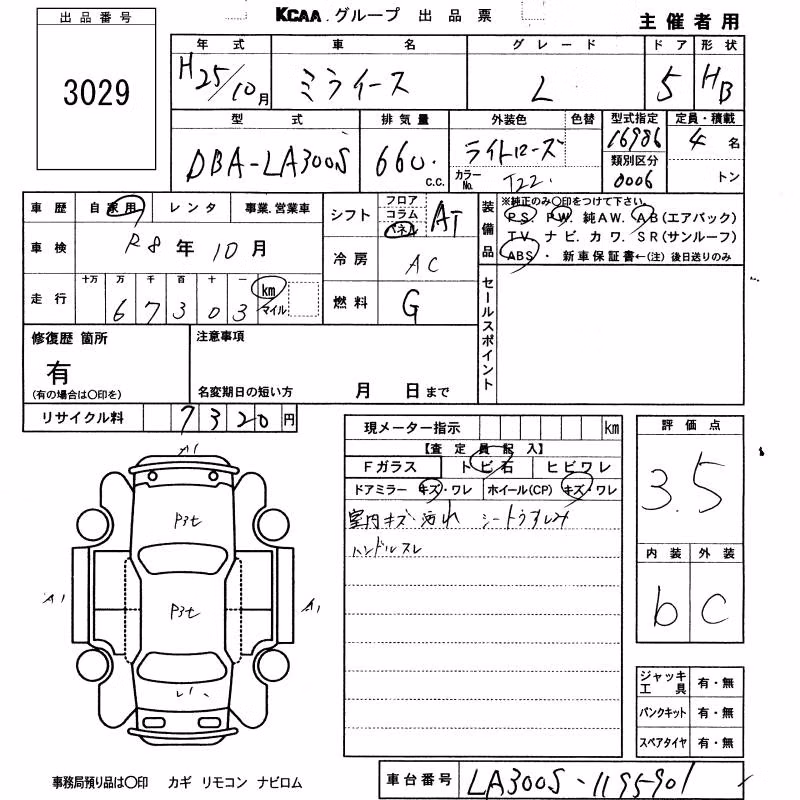 KCAA.グループ 出品票
主催者用
出品番号
3029
年式 車名 グレード ドア 形状
H25/10月 ミライース L 5 HB
型式 排気量 外装色 色替 型式指定 定員・積載
DBA-LA300S 660 c.c. ライトローズ 16986 4 名
カラーNo. T22 類別区分 0006 トン
車歴 自家用 レンタ 事業.営業車
車検 R8年10月
走行 十万 万 千 百 十 一 km マイル
6 7 3 0 3
シフト フロア コラム パネル AT
冷房 AC
燃料 G
装備品
※純正のみ〇印をつけて下さい。
PS. PW. 純AW. AB(エアバック)
TV. ナビ. カワ. SR(サンルーフ)
ABS・ 新車保証書←(注)後日送りのみ
セールスポイント
修復歴 箇所
有
(有の場合は〇印を)
注意事項
名変期日の短い方 月 日まで
リサイクル料 7320円
現メーター指示 km
【査定員記入】
Fガラス トビ石 ヒビワレ
ドアミラー キズ・ワレ ホイール(CP) キズ・ワレ
室内キズ・汚れ シートうすしみ
ハンドルスレ
評価点
3.5
内装 外装
b C
A1
P3t
A1 P3t A1
ジャッキ工具 有・無
パンクキット 有・無
スペアタイヤ 有・無
事務局預り品は〇印 カギ リモコン ナビロム
車台番号 LA300S-1195901